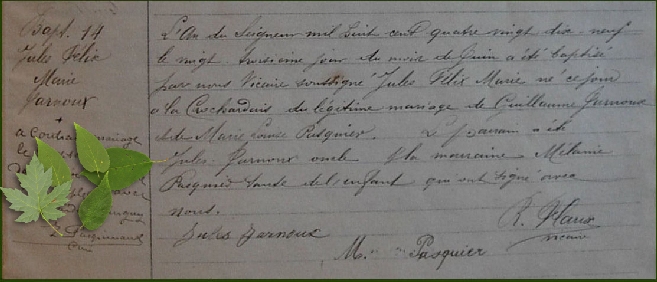 Bapt. 14
Jules Félix
Marie
Jarnoux
+
a contracté mariage
le
L'An du Seigneur mil huit cent quatre vingt dix-neuf
le vingt troisième jour du mois de Juin a été baptisé
par nous Vicaire soussigné Jules Félix Marie né ce jour
à la Crochardais du légitime mariage de Guillaume Jarnoux
et de Marie Louise Pasquier. Le parrain a été
Jules Jarnoux oncle & la marraine Mélanie
Pasquier tante de l'enfant qui ont signé avec
nous.
Jules Jarnoux
M. Pasquier
R.
vicaire